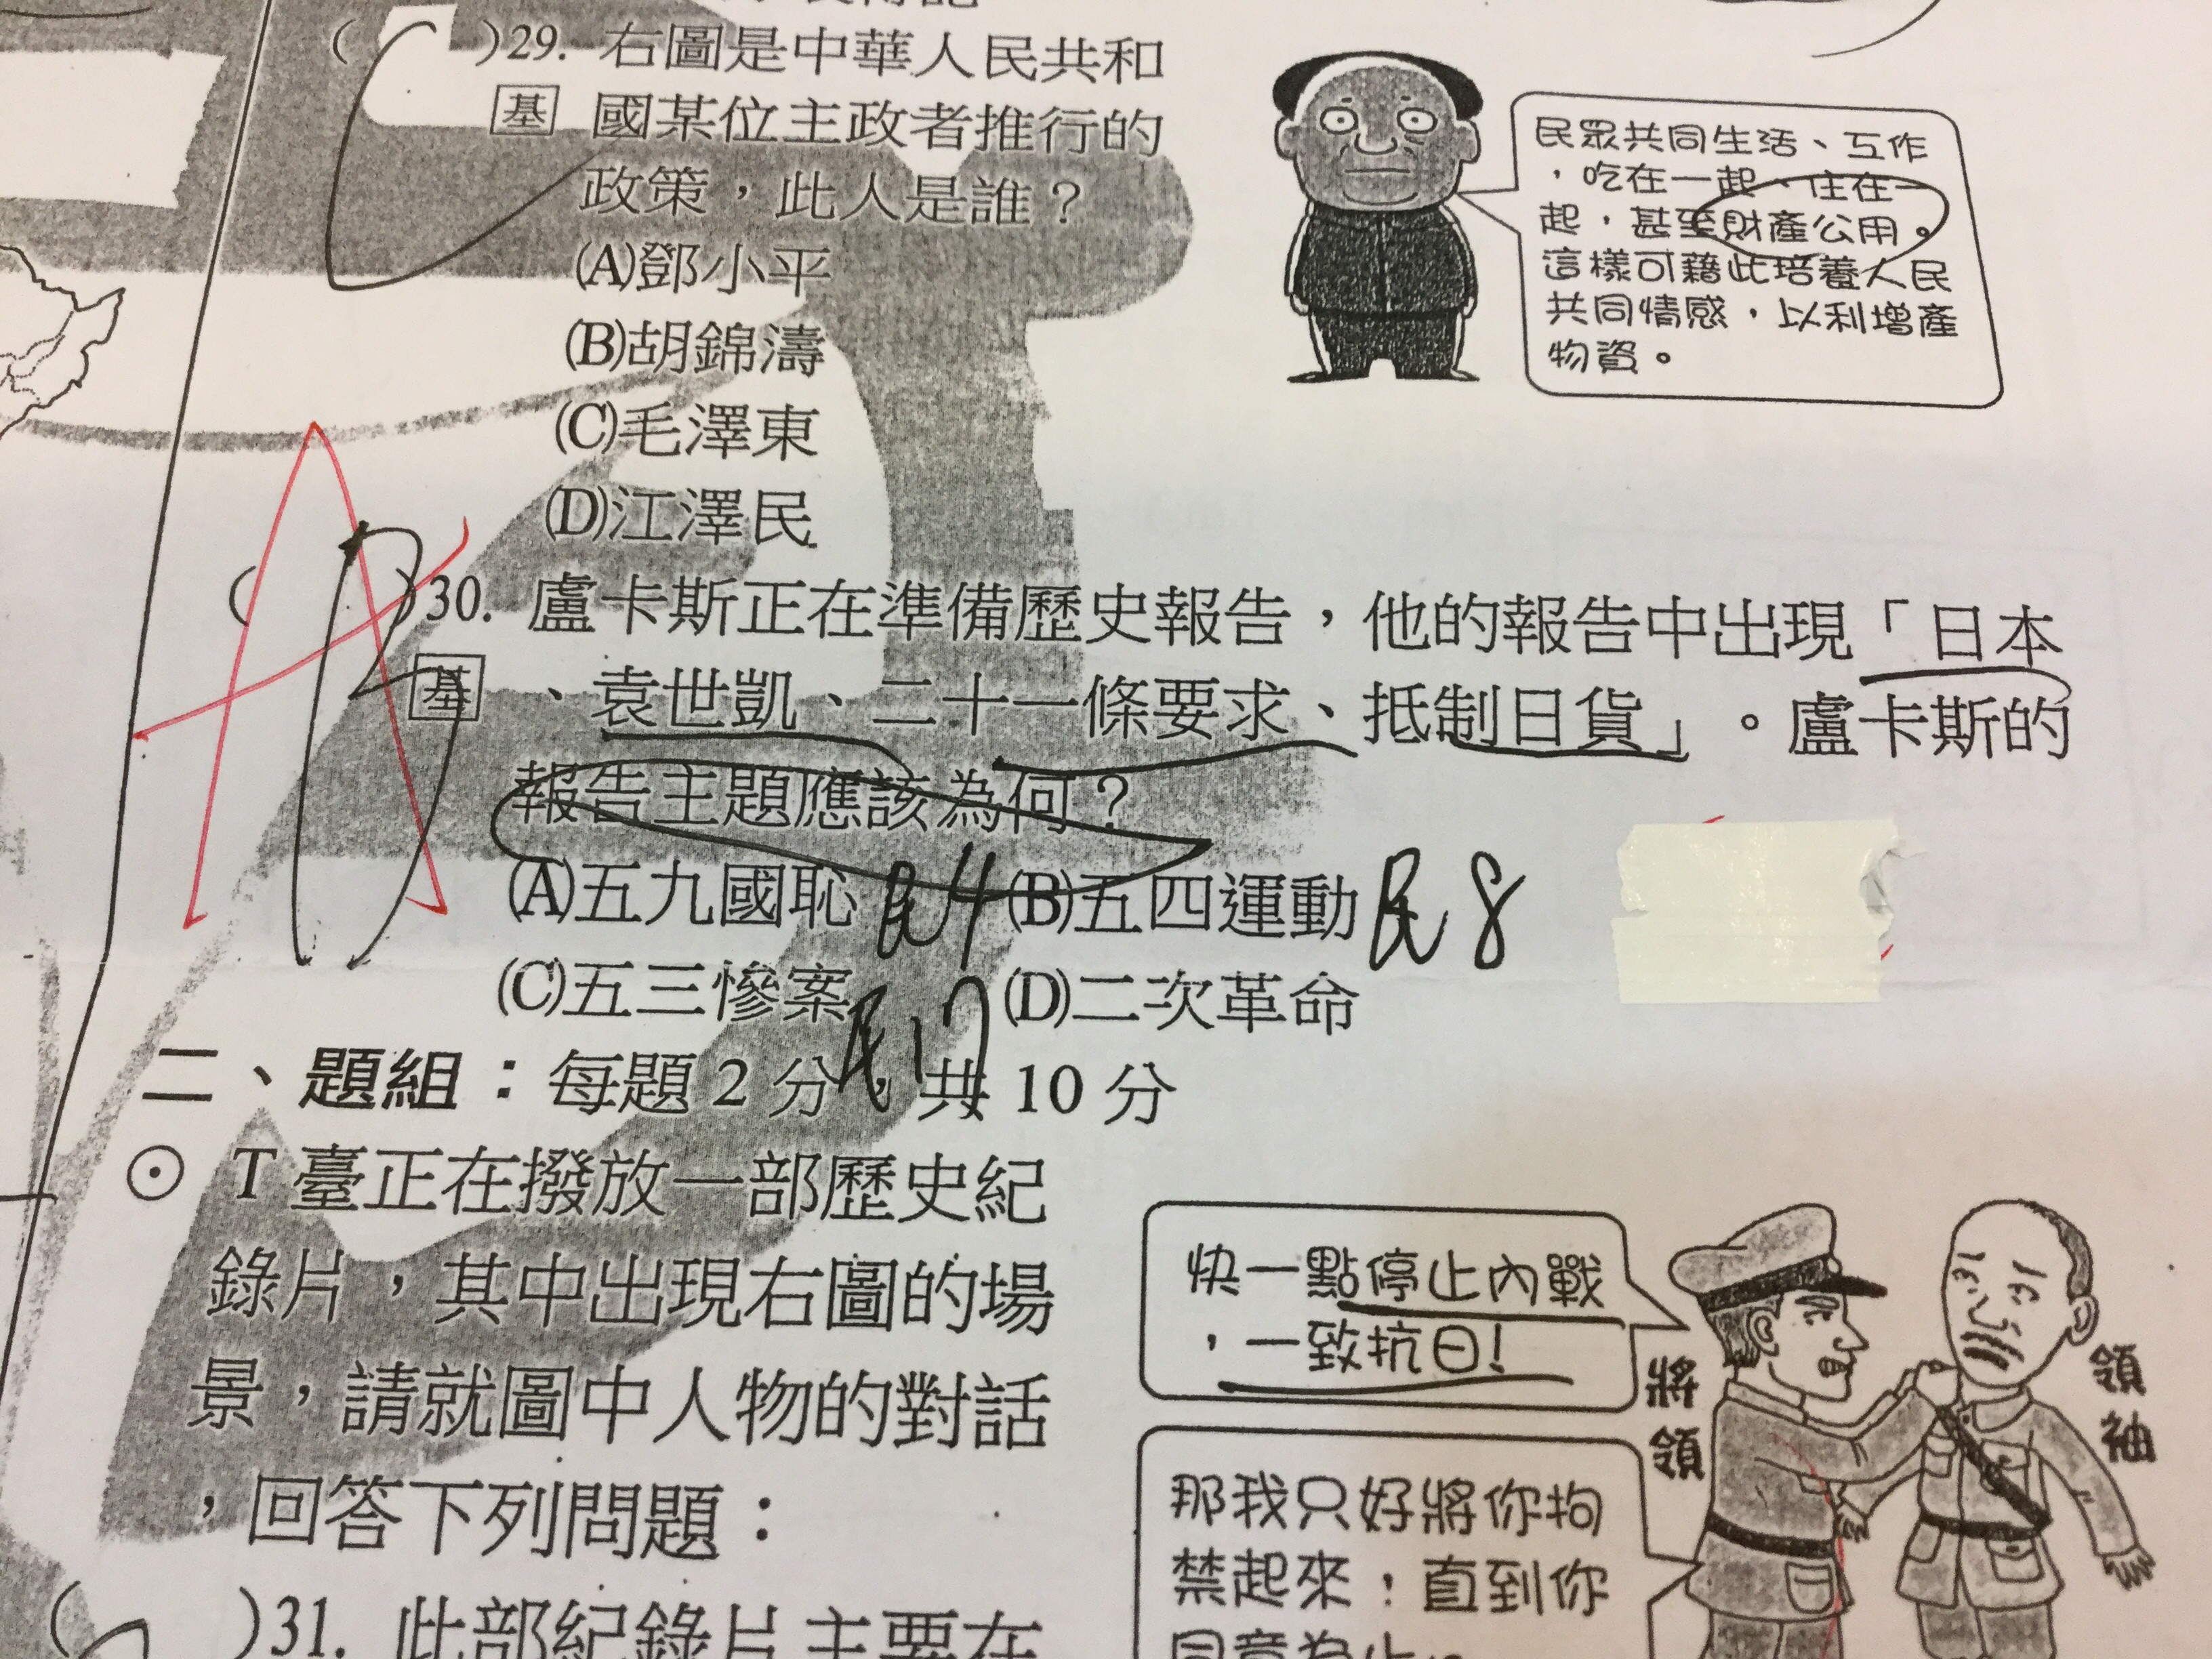 ( C )29. 右圖是中華人民共和
基 國某位主政者推行的
政策，此人是誰？
(A)鄧小平
(B)胡錦濤
(C)毛澤東
(D)江澤民
民眾共同生活、互作
，吃在一起、住在一
起，甚至財產公用。
這樣可藉此培養人民
共同情感，以利增產
物資。
A
( B )30. 盧卡斯正在準備歷史報告，他的報告中出現「日本
基 、袁世凱、二十一條要求、抵制日貨」。盧卡斯的
報告主題應該為何？
(A)五九國恥 民4 (B)五四運動 民8
(C)五三慘案 民17 (D)二次革命
二、題組：每題 2 分，共 10 分
⊙ T 臺正在撥放一部歷史紀
錄片，其中出現右圖的場
景，請就圖中人物的對話
，回答下列問題：
快一點停止內戰
，一致抗日！
將領
領袖
那我只好將你拘
禁起來，直到你
同意為止。
( )31. 此部紀錄片主要在